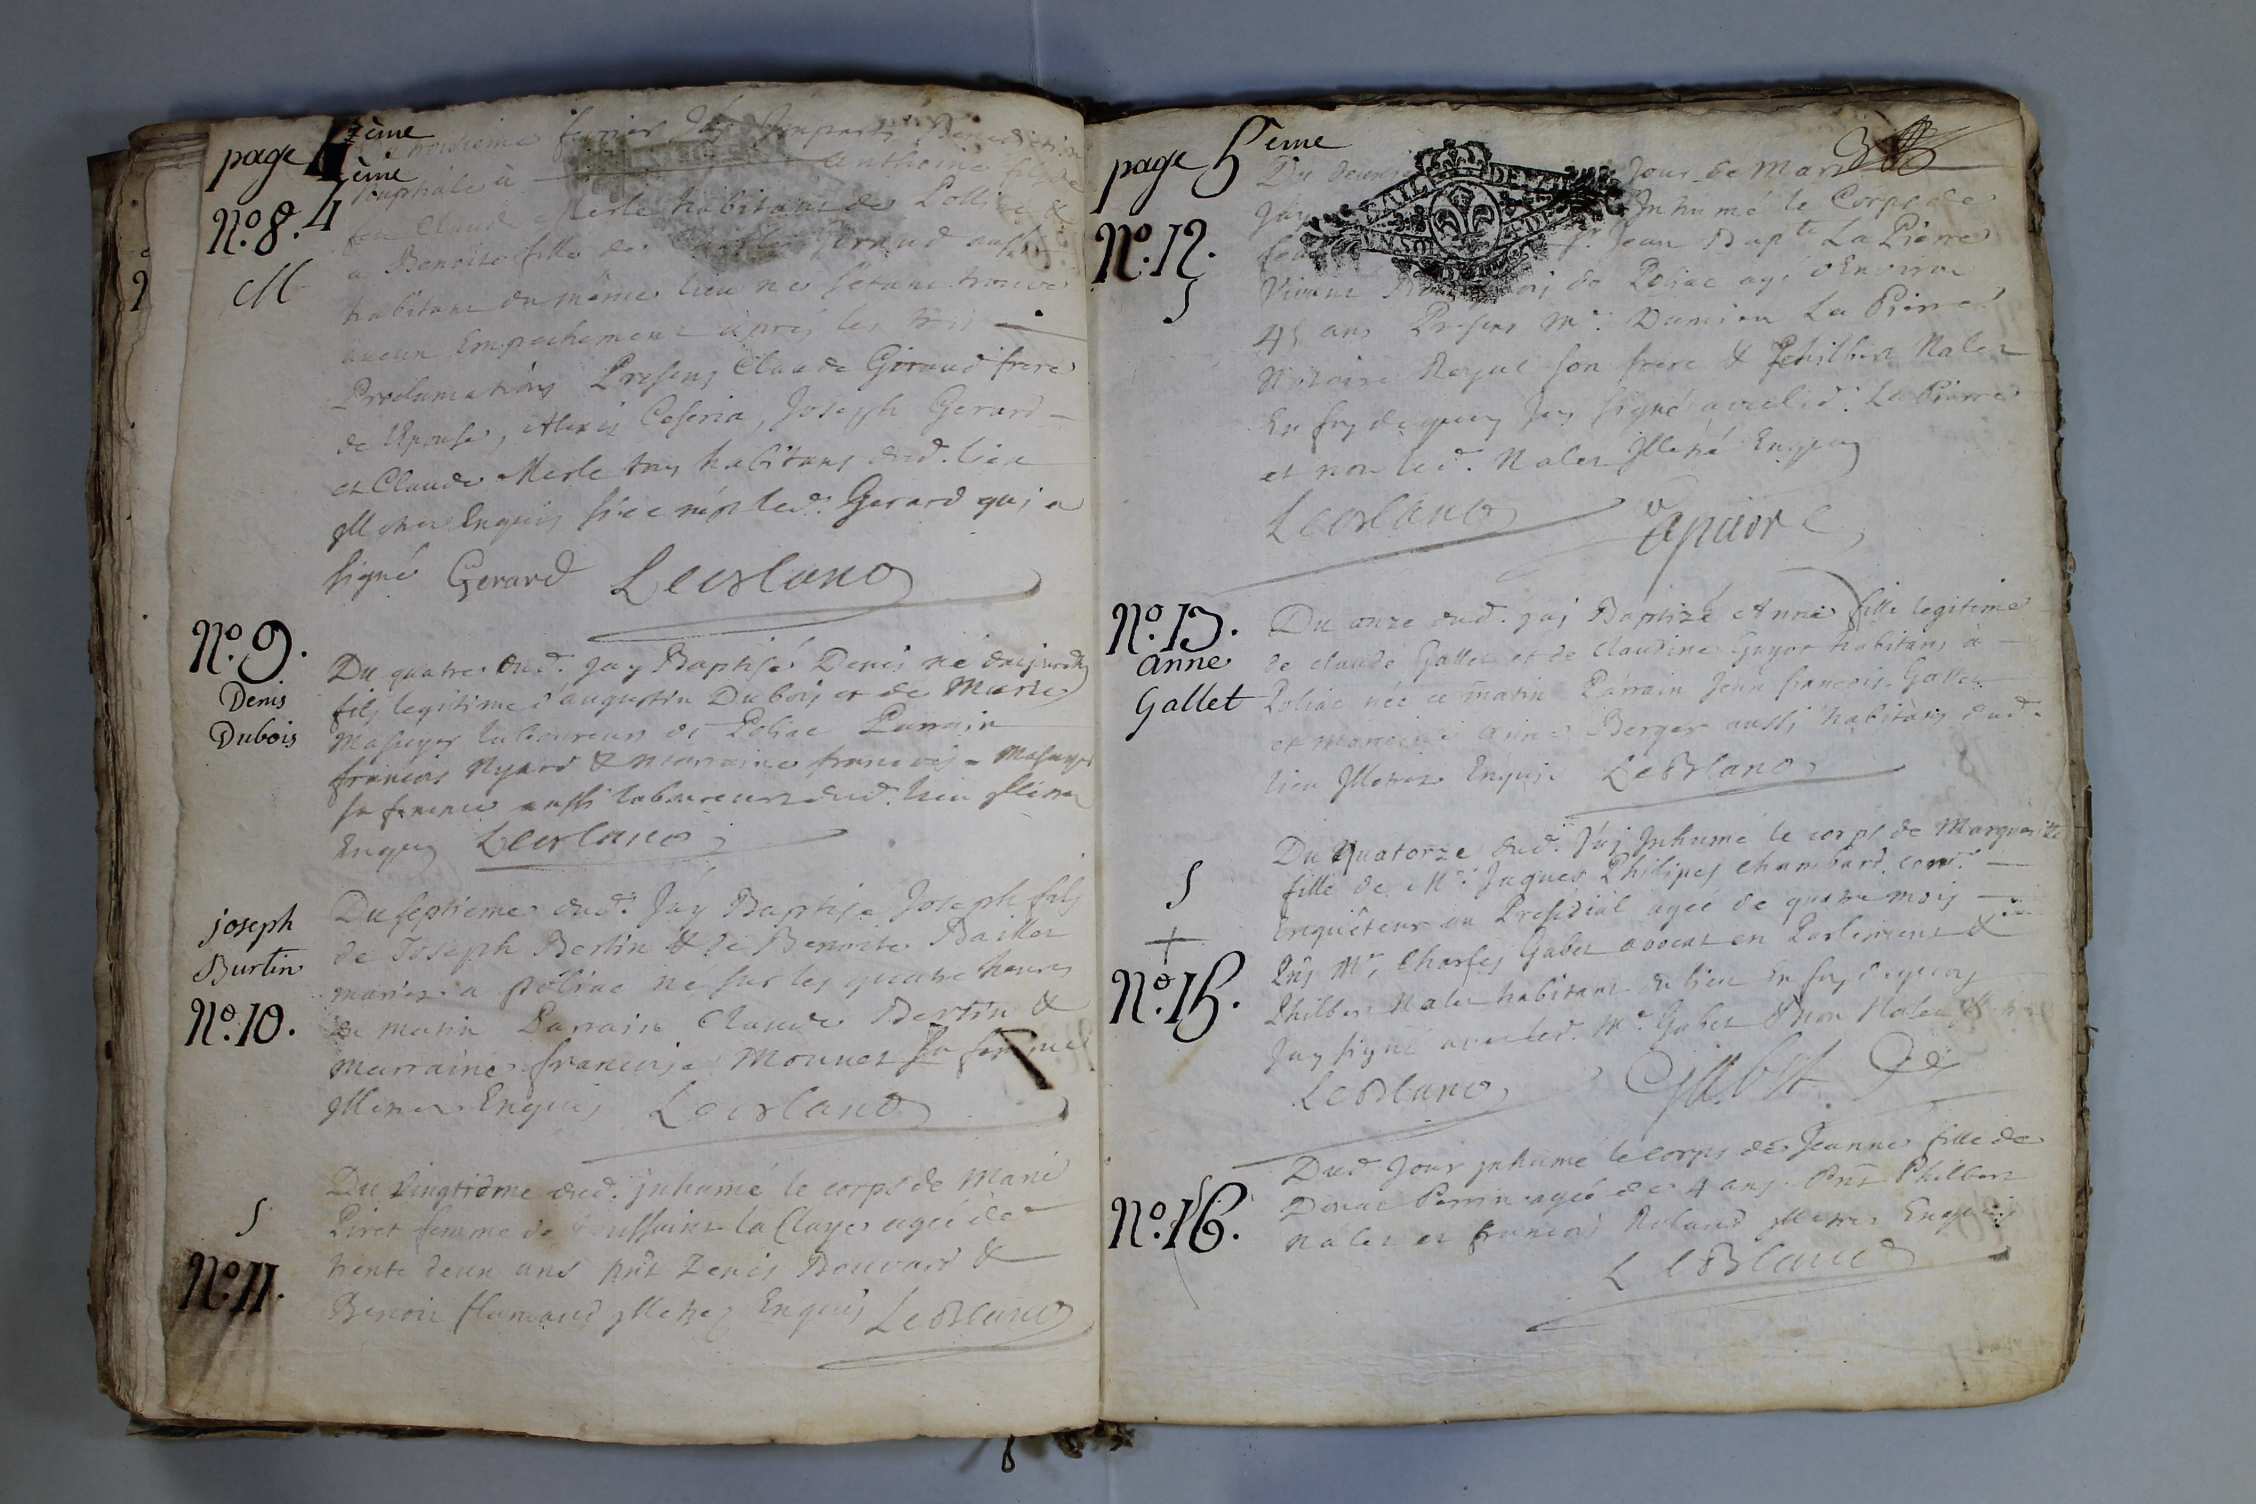 page 4
ème
ème
4
No. 8.
M
février J'ay Imparti Benediction
Nuptiale à Anthoine fils de
feu Claude Merle habitant de Polliac &
a Benoite fille de Giraud aussy
habitant du même lieu ne s'etant trouvé
aucun Empechement après les trois
Proclamations Presens Claude Giraud frere
de l'Epouse, Alexis Ceseria, Joseph Gerard
et Claude Merle tous habitans dud. lieu
Illeteres Enquis led. Gerard qui a
signé Gerard LeBlanc
No. 9.
Denis
Dubois
Du quatre dud. jay Baptisé Denis né
fils legitime d'augustin Dubois et de Marie
Masuyer laboureurs de Poliac Parrain
francois Nyard & marraine francoise Masuyer
sa femme aussi laboureurs dud. lieu
Enquis LeBlanc
joseph
Burtin
No. 10.
Du septieme dud. J'ay Baptisé Joseph fils
de Joseph Bertin & de Benoite Baillet
mariez a poliac né sur les quatre heures
du matin Parrain Claude Bertin &
marraine francoise Monnet sa femme
Enquis LeBlanc
S
No. 11.
Du vingtième dud. inhumé le corps de Marie
Piret femme de Toussaint la Claye agée de
trente deux ans pnt Denis Bouvard &
Benoit flamand Enquis LeBlanc
page 5 ème
No. 12.
S
Du Jour de Mars
J'ay Inhumé le Corps de
feu Sr. Jean Bapte La Pierre
vivant Bourgeois de Poliac agé d'Environ
45 ans Presens Mr. Damien La Pierre
Notaire Royal son frere & Philibert Nalet
En foy dequoy Jay signé avec led. La Pierre
et non led. Nalet Enquis
LeBlanc Lapierre
No. 13.
anne
Gallet
Du onze dud. jai Baptizé Anne fille legitime
de claude Gallet et de claudine Guyot habitans à
Poliac née ce matin Parrain Jean francois Gallet
et marraine anne Berger aussi habitans dud.
lieu Enquis LeBlanc
S
+
No. 15.
Du Quatorze dud. J'ay Inhumé le corps de Marguerite
fille de Mr. Jaques Philipes Chambard. comre.
Enquêteur au Presidial agée de quatre mois
Pns Mr. Charles Gabet avocat en Parlement &
Philbert Nalet habitant du lieu En foy dequoy
Jay signé avec led. Mr. Gabet & non Nalet
LeBlanc Gabet
No. 16.
Dud. Jour inhumé le corps de Jeanne fille de
Perrin agée de 4 ans. Pnt Philbert
Nalet et francois Roland Enquis
LeBlanc